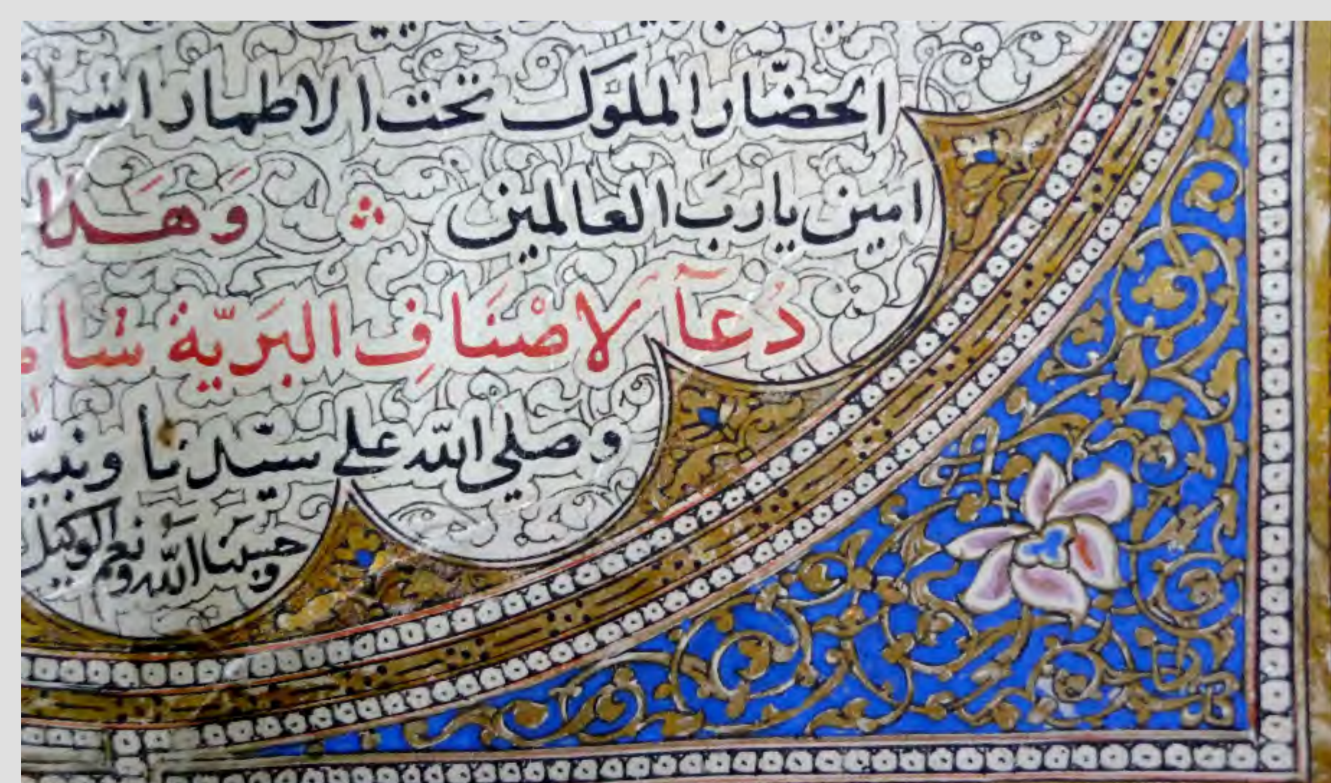 الحضّار الملوك تحت الاطمار اشراف
امين يارب العالمين وَهَذا
دُعآ لاصْنَافِ البَريّة شا
وصلي الله علي سيّدنا ونبيّ
حسبنا الله ونعم الوكيل